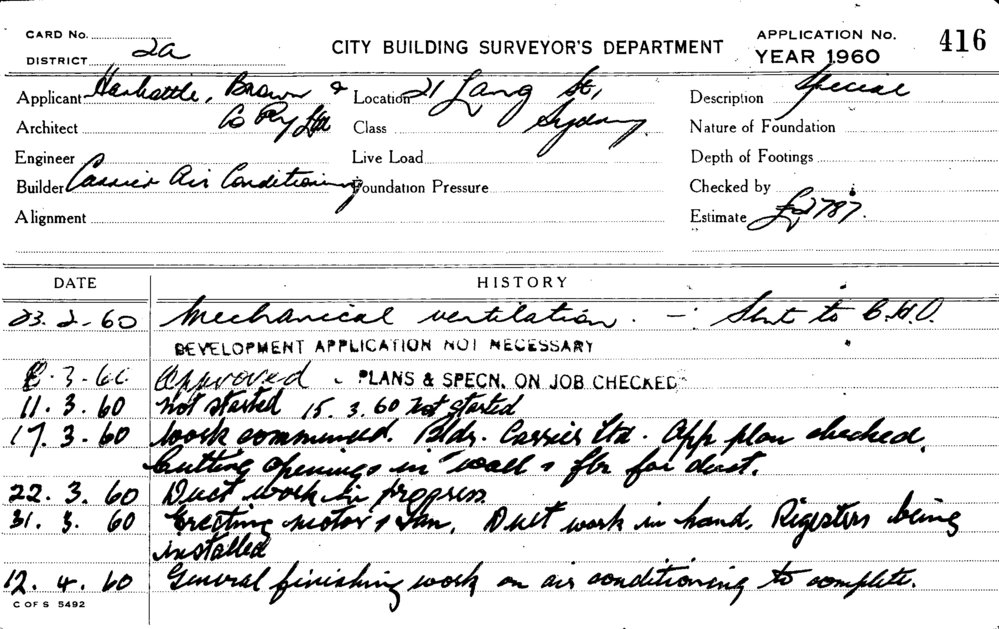 CARD No.
DISTRICT 2a
CITY BUILDING SURVEYOR'S DEPARTMENT
APPLICATION No. 416
YEAR 1960
Applicant Harbottle, Brown & Co Pty Ltd
Location 21 Lang St, Sydney
Description Special
Architect
Class
Nature of Foundation
Engineer
Live Load
Depth of Footings
Builder Carrier Air Conditioning
Foundation Pressure
Checked by
Alignment
Estimate £2787.
DATE HISTORY
23.2.60 Mechanical ventilation. - Sent to C.H.O.
DEVELOPMENT APPLICATION NOT NECESSARY
.3.60 Approved - PLANS & SPECN. ON JOB CHECKED
11.3.60 Not started 15.3.60 Not started
17.3.60 Work commenced. Bldr. Carrier Ltd. App plan checked.
Cutting openings in wall & flr for duct.
22.3.60 Duct work in progress
31.3.60 Erecting motor & fan. Duct work in hand. Registers being
installed
12.4.60 General finishing work on air conditioning to complete.
C OF S 5492